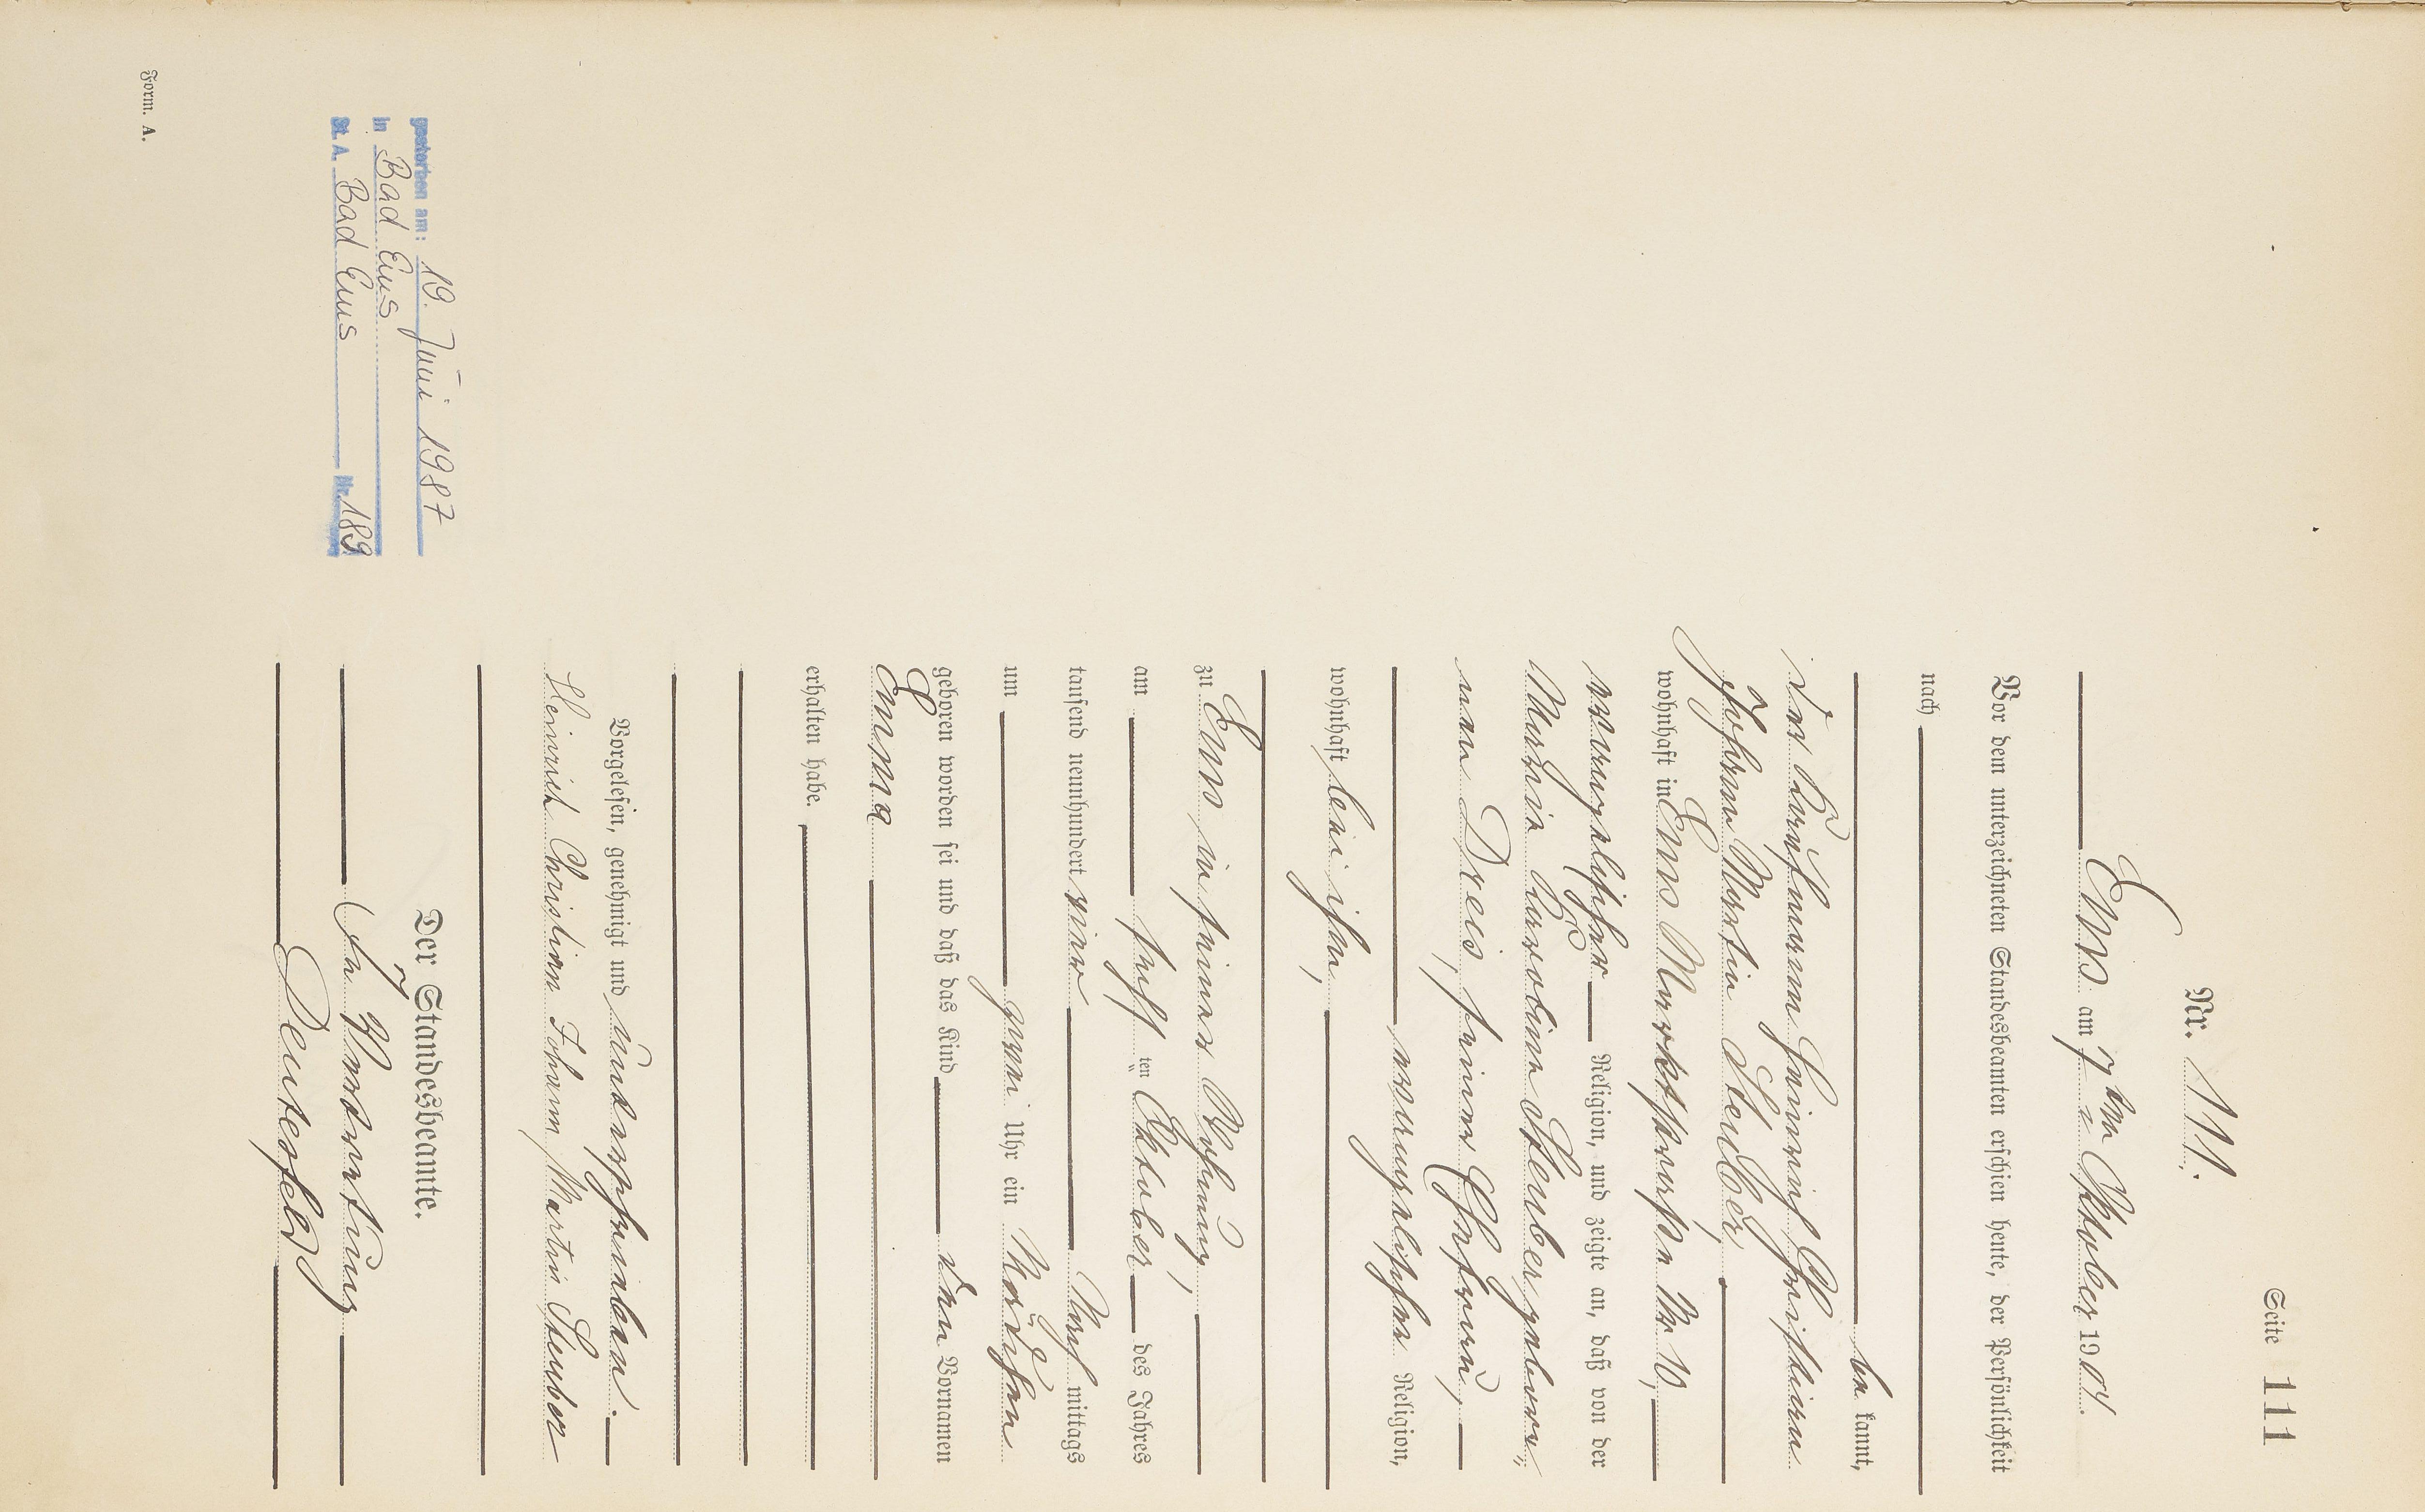 Seite 111
Nr. 111.
Ems am 7ten Oktober 1904.
Vor dem unterzeichneten Standesbeamten erschien heute, der Persönlichkeit
nach
be kannt,
der Kaufmann Heinrich Christian
Johann Martin Steuber,
wohnhaft in Ems Marktstraße Nr 10,
evangelischer Religion, und zeigte an, daß von der
Maria Karoline Steuber geborene
Dreis, seiner Ehefrau,
evangelischer Religion,
wohnhaft bei ihm,
zu Ems in seiner Wohnung,
am fünften Oktober des Jahres
tausend neunhundert vier Nach mittags
um zwei Uhr ein Mädchen
geboren worden sei und daß das Kind den Vornamen
Emma
erhalten habe.
Vorgelesen, genehmigt und unterschrieben.
Heinrich Christian Johann Martin Steuber
Der Standesbeamte.
In Vertretung
gestorben am: 19. Juni 1987
in Bad Ems
St. A. Bad Ems Nr. 189
Form. A.